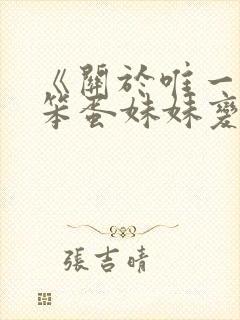 《關於唯一
笨蛋妹妹變
張吉晴